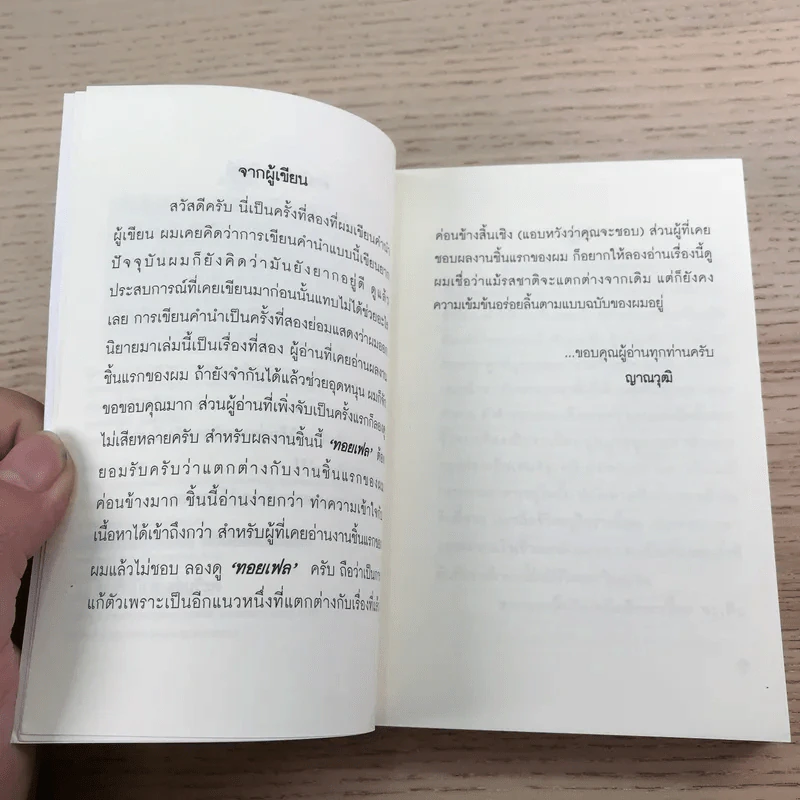 จากผู้เขียน
สวัสดีครับ นี่เป็นครั้งที่สองที่ผมเขียนคำนำ
ผู้เขียน ผมเคยคิดว่าการเขียนคำนำแบบนี้เขียนยาก
ปัจจุบันผมก็ยังคิดว่ามันยังยากอยู่ดี ดูแล้ว
ประสบการณ์ที่เคยเขียนมาก่อนนั้นแทบไม่ได้ช่วยอะไร
เลย การเขียนคำนำเป็นครั้งที่สองย่อมแสดงว่าผมออก
นิยายมาเล่มนี้เป็นเรื่องที่สอง ผู้อ่านที่เคยอ่านผลงาน
ชิ้นแรกของผม ถ้ายังจำกันได้แล้วช่วยอุดหนุน ผมก็
ขอขอบคุณมาก ส่วนผู้อ่านที่เพิ่งจับเป็นครั้งแรกก็
ไม่เสียหลายครับ สำหรับผลงานชิ้นนี้ 'ทอยเฟล' ต้อง
ยอมรับครับว่าแตกต่างกับงานชิ้นแรกของผม
ค่อนข้างมาก ชิ้นนี้อ่านง่ายกว่า ทำความเข้าใจกับ
เนื้อหาได้เข้าถึงกว่า สำหรับผู้ที่เคยอ่านงานชิ้นแรกของ
ผมแล้วไม่ชอบ ลองดู 'ทอยเฟล' ครับ ถือว่าเป็นการ
แก้ตัวเพราะเป็นอีกแนวหนึ่งที่แตกต่างกับเรื่องที่แล้ว
ค่อนข้างสิ้นเชิง (แอบหวังว่าคุณจะชอบ) ส่วนผู้ที่เคย
ชอบผลงานชิ้นแรกของผม ก็อยากให้ลองอ่านเรื่องนี้ดู
ผมเชื่อว่าแม้รสชาติจะแตกต่างจากเดิม แต่ก็ยังคง
ความเข้มข้นอร่อยลิ้นตามแบบฉบับของผมอยู่
...ขอบคุณผู้อ่านทุกท่านครับ
ญาณวุฒิ